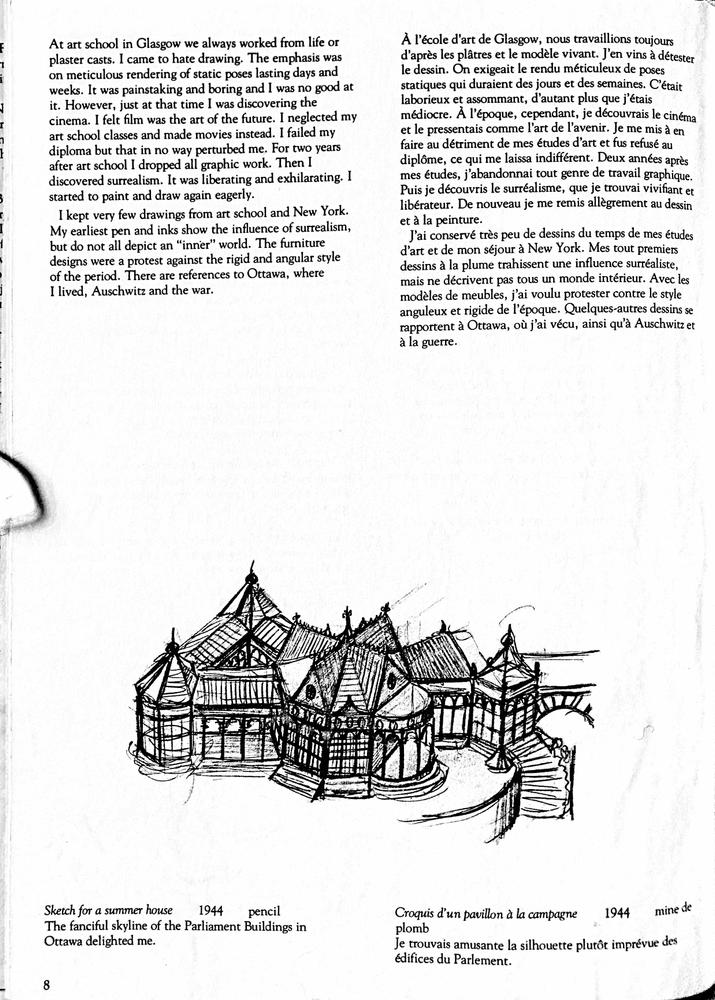 At art school in Glasgow we always worked from life or
plaster casts. I came to hate drawing. The emphasis was
on meticulous rendering of static poses lasting days and
weeks. It was painstaking and boring and I was no good at
it. However, just at that time I was discovering the
cinema. I felt film was the art of the future. I neglected my
art school classes and made movies instead. I failed my
diploma but that in no way perturbed me. For two years
after art school I dropped all graphic work. Then I
discovered surrealism. It was liberating and exhilarating. I
started to paint and draw again eagerly.
I kept very few drawings from art school and New York.
My earliest pen and inks show the influence of surrealism,
but do not all depict an “inner” world. The furniture
designs were a protest against the rigid and angular style
of the period. There are references to Ottawa, where
I lived, Auschwitz and the war.
À l'école d'art de Glasgow, nous travaillions toujours
d'après les plâtres et le modèle vivant. J'en vins à détester
le dessin. On exigeait le rendu méticuleux de poses
statiques qui duraient des jours et des semaines. C'était
laborieux et assommant, d'autant plus que j'étais
médiocre. À l'époque, cependant, je découvrais le cinéma
et le pressentais comme l'art de l'avenir. Je me mis à en
faire au détriment de mes études d'art et fus refusé au
diplôme, ce qui me laissa indifférent. Deux années après
mes études, j'abandonnai tout genre de travail graphique.
Puis je découvris le surréalisme, que je trouvai vivifiant et
libérateur. De nouveau je me remis allègrement au dessin
et à la peinture.
J'ai conservé très peu de dessins du temps de mes études
d'art et de mon séjour à New York. Mes tout premiers
dessins à la plume trahissent une influence surréaliste,
mais ne décrivent pas tous un monde intérieur. Avec les
modèles de meubles, j'ai voulu protester contre le style
anguleux et rigide de l'époque. Quelques-autres dessins se
rapportent à Ottawa, où j'ai vécu, ainsi qu'à Auschwitz et
à la guerre.
Sketch for a summer house 1944 pencil
The fanciful skyline of the Parliament Buildings in
Ottawa delighted me.
Croquis d'un pavillon à la campagne 1944 mine de
plomb
Je trouvais amusante la silhouette plutôt imprévue des
édifices du Parlement.
8